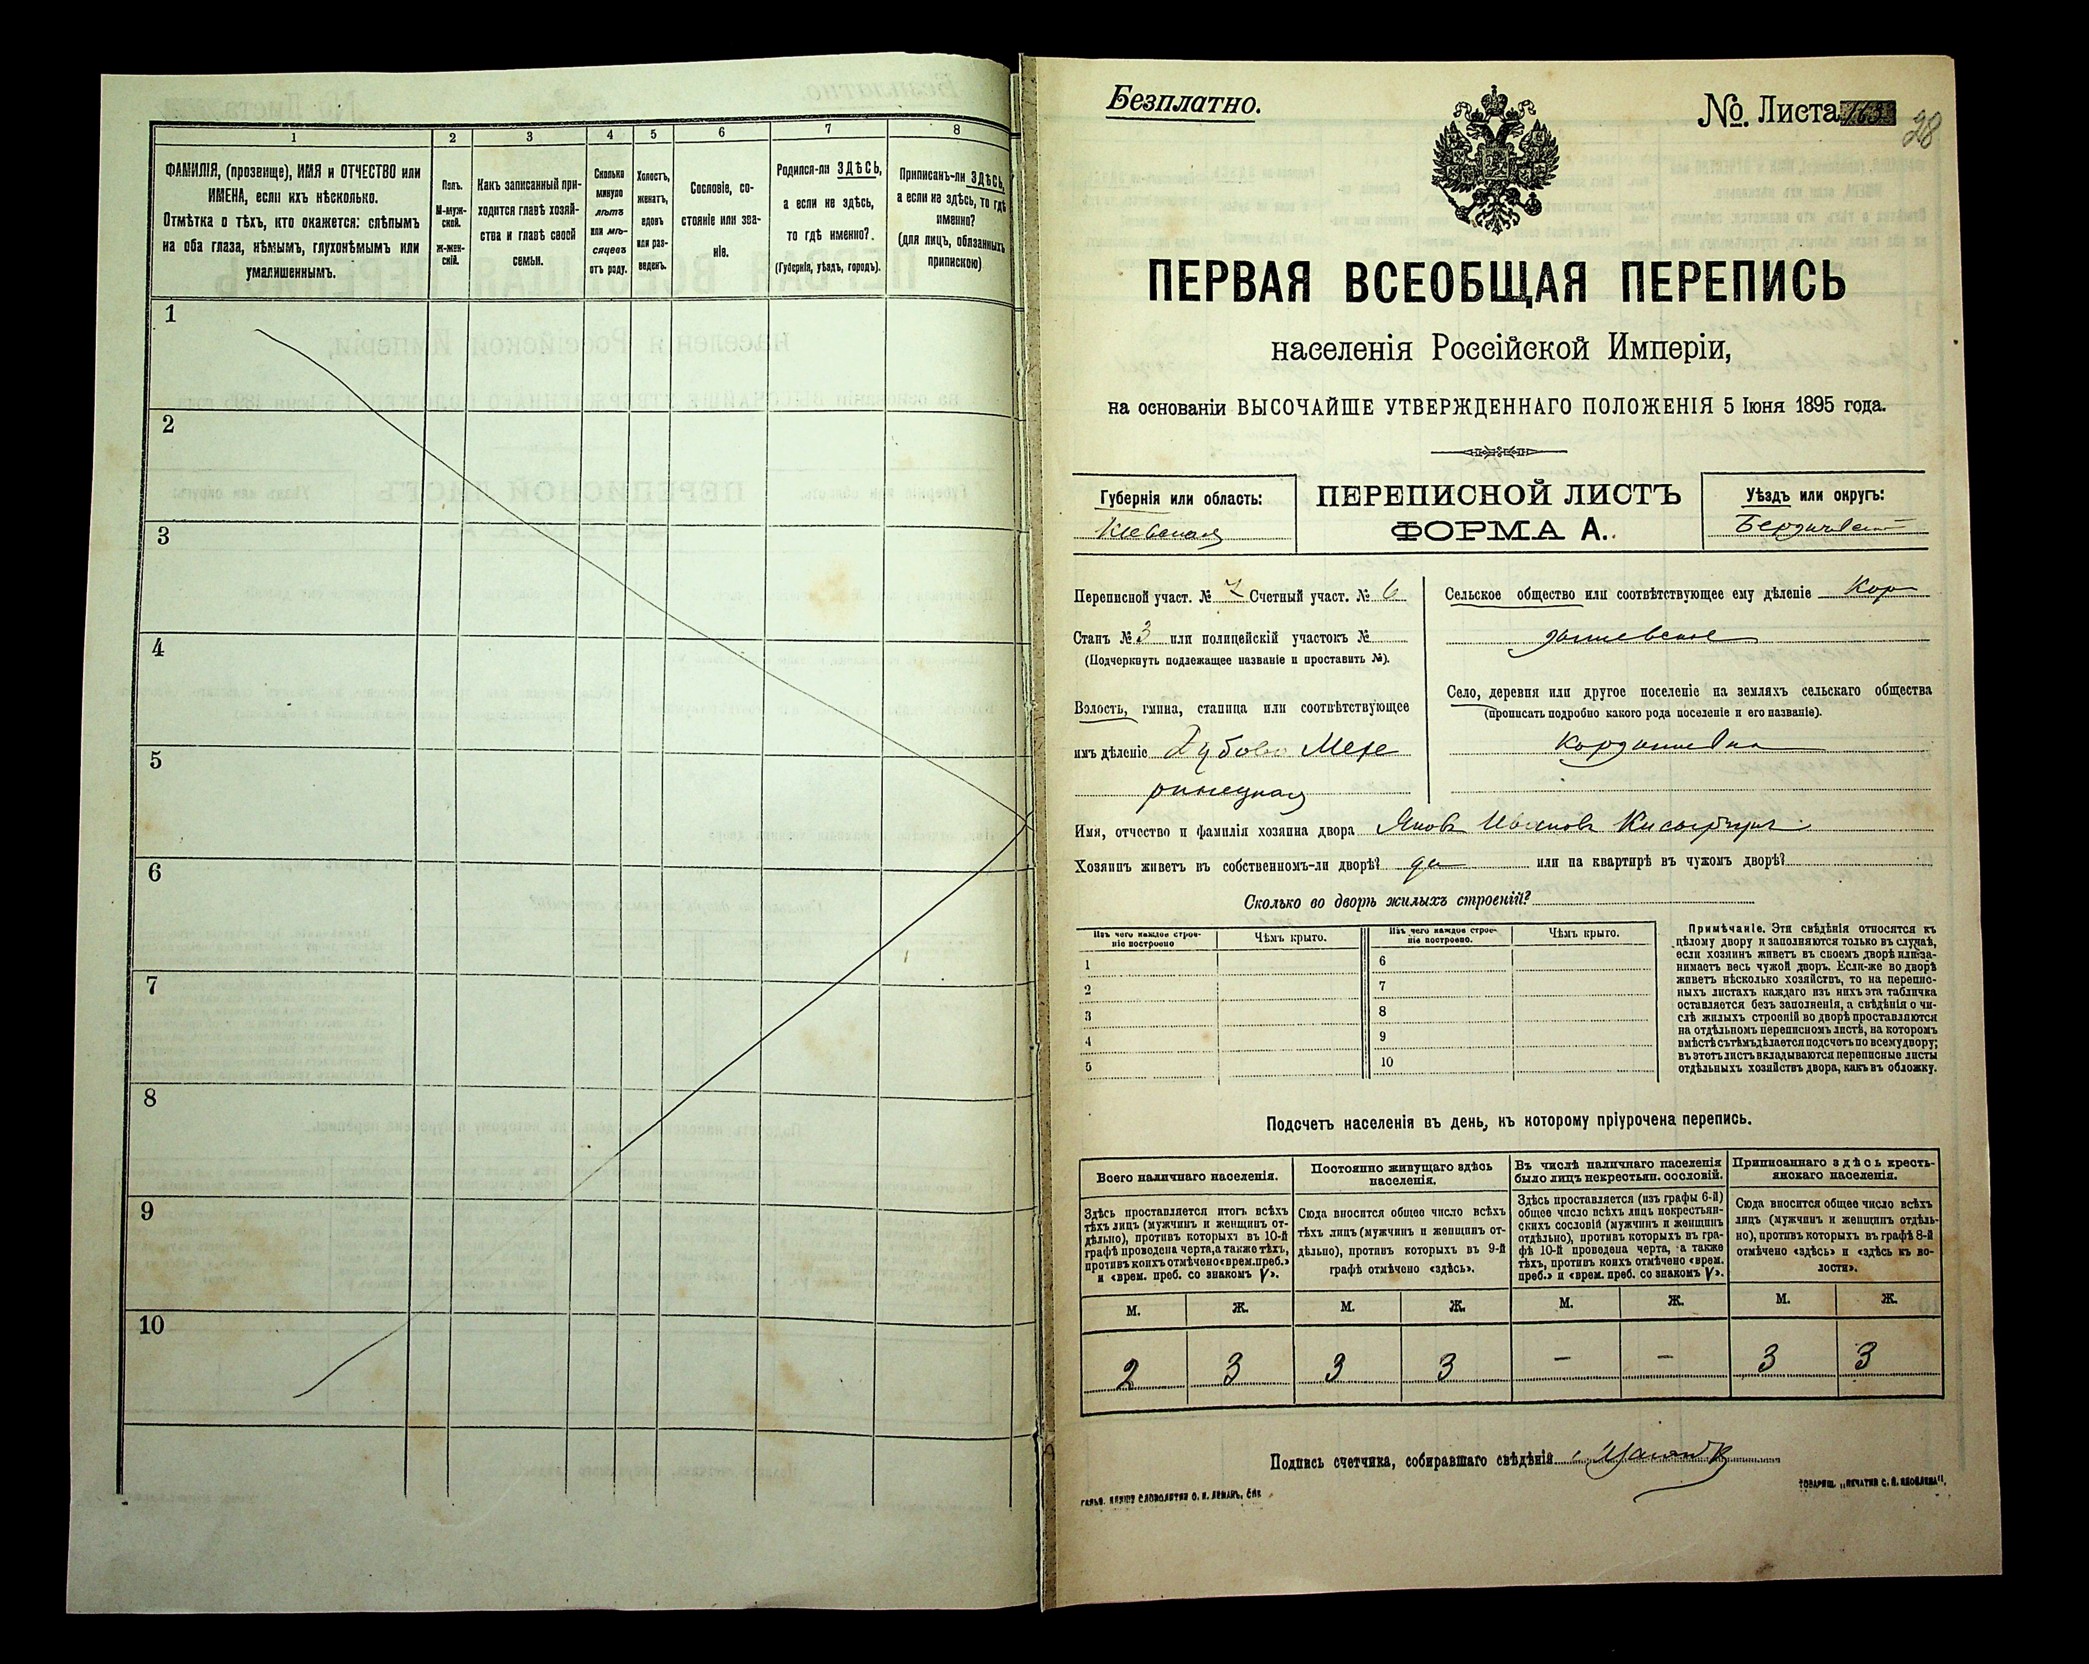 1
2
3
4
5
6
7
8
ФАМИЛІЯ, (прозвище), ИМЯ и ОТЧЕСТВО или
ИМЕНА, если ихъ нѣсколько.
Отмѣтка о тѣхъ, кто окажется: слѣпымъ
на оба глаза, нѣмымъ, глухонѣмымъ или
умалишеннымъ.
Полъ.
М-муж-
ской.
Ж-жен-
скій.
Какъ записанный при-
ходится главѣ хозяй-
ства и главѣ своей
семьи.
Сколько
минуло
лѣтъ
или мѣ-
сяцевъ
отъ роду.
Холостъ,
женатъ,
вдовъ
или раз-
веденъ.
Сословіе, со-
стояніе или зва-
ніе.
Родился-ли ЗДѢСЬ,
а если не здѣсь,
то гдѣ именно?.
(Губернія, уѣздъ, городъ).
Приписанъ-ли ЗДѢСЬ,
а если не здѣсь, то гдѣ
именно?
(для лицъ, обязанныхъ
припискою)
1
2
3
4
5
6
7
8
9
10
Безплатно.
№. Листа 163
28
ПЕРВАЯ ВСЕОБЩАЯ ПЕРЕПИСЬ
населенія Россійской Имперіи,
на основаніи ВЫСОЧАЙШЕ УТВЕРЖДЕННАГО ПОЛОЖЕНІЯ 5 Іюня 1895 года.
Губернія или область:
Кіевская
ПЕРЕПИСНОЙ ЛИСТЪ
ФОРМА А.
Уѣздъ или округъ:
Бердичевск
Переписной участ. № 7 Счетный участ. № 6
Станъ № 3 или полицейскій участокъ №
(Подчеркнуть подлежащее названіе и проставить №).
Волость, гмина, станица или соотвѣтствующее
имъ дѣленіе Дубово Меже
ринецкая
Сельское общество или соотвѣтствующее ему дѣленіе Кор
дышевское
Село, деревня или другое поселеніе на земляхъ сельскаго общества
(прописать подробно какого рода поселеніе и его названіе).
Кордышевка
Имя, отчество и фамилія хозяина двора Яковъ Ивановъ
Хозяинъ живетъ въ собственномъ-ли дворѣ? да или на квартирѣ въ чужомъ дворѣ?
Сколько во дворѣ жилыхъ строеній?
Изъ чего каждое строе-
ніе построено
Чѣмъ крыто.
Изъ чего каждое строе-
ніе построено.
Чѣмъ крыто.
1
2
3
4
5
6
7
8
9
10
Примѣчаніе. Эти свѣдѣнія относятся къ
цѣлому двору и заполняются только въ случаѣ,
если хозяинъ живетъ въ своемъ дворѣ или за-
нимаетъ весь чужой дворъ. Если-же во дворѣ
живетъ нѣсколько хозяйствъ, то на перепис-
ныхъ листахъ каждаго изъ нихъ эта табличка
оставляется безъ заполненія, а свѣдѣнія о чи-
слѣ жилыхъ строеній во дворѣ проставляются
на отдѣльномъ переписномъ листѣ, на которомъ
вмѣстѣ съ тѣмъ дѣлается подсчетъ по всему двору;
въ этотъ листъ вкладываются переписные листы
отдѣльныхъ хозяйствъ двора, какъ въ обложку.
Подсчетъ населенія въ день, къ которому пріурочена перепись.
Всего наличнаго населенія.
Постоянно живущаго здѣсь
населенія.
Въ числѣ наличнаго населенія
было лицъ некрестьян. сословій.
Приписаннаго здѣсь кресть-
янскаго населенія.
Здѣсь проставляется итогъ всѣхъ
тѣхъ лицъ (мужчинъ и женщинъ от-
дѣльно), противъ которыхъ въ 10-й
графѣ проведена черта, а также тѣхъ,
противъ коихъ отмѣчено «врем. преб.»
и «врем. преб. со знакомъ V».
Сюда вносится общее число всѣхъ
тѣхъ лицъ (мужчинъ и женщинъ от-
дѣльно), противъ которыхъ въ 9-й
графѣ отмѣчено «здѣсь».
Здѣсь проставляется (изъ графы 6-й)
общее число всѣхъ лицъ некрестьян-
скихъ сословій (мужчинъ и женщинъ
отдѣльно), противъ которыхъ въ гра-
фѣ 10-й проведена черта, а также
тѣхъ, противъ коихъ отмѣчено «врем.
преб.» и «врем. преб. со знакомъ V».
Сюда вносится общее число всѣхъ
лицъ (мужчинъ и женщинъ отдѣль-
но), противъ которыхъ въ графѣ 8-й
отмѣчено «здѣсь» и «здѣсь къ во-
лости».
М. Ж. М. Ж. М. Ж. М. Ж.
2 3 3 3 - - 3 3
Подпись счетчика, собиравшаго свѣдѣнія
ТОВАРИЩ. „ПЕЧАТНЯ С. П. ЯКОВЛЕВА".